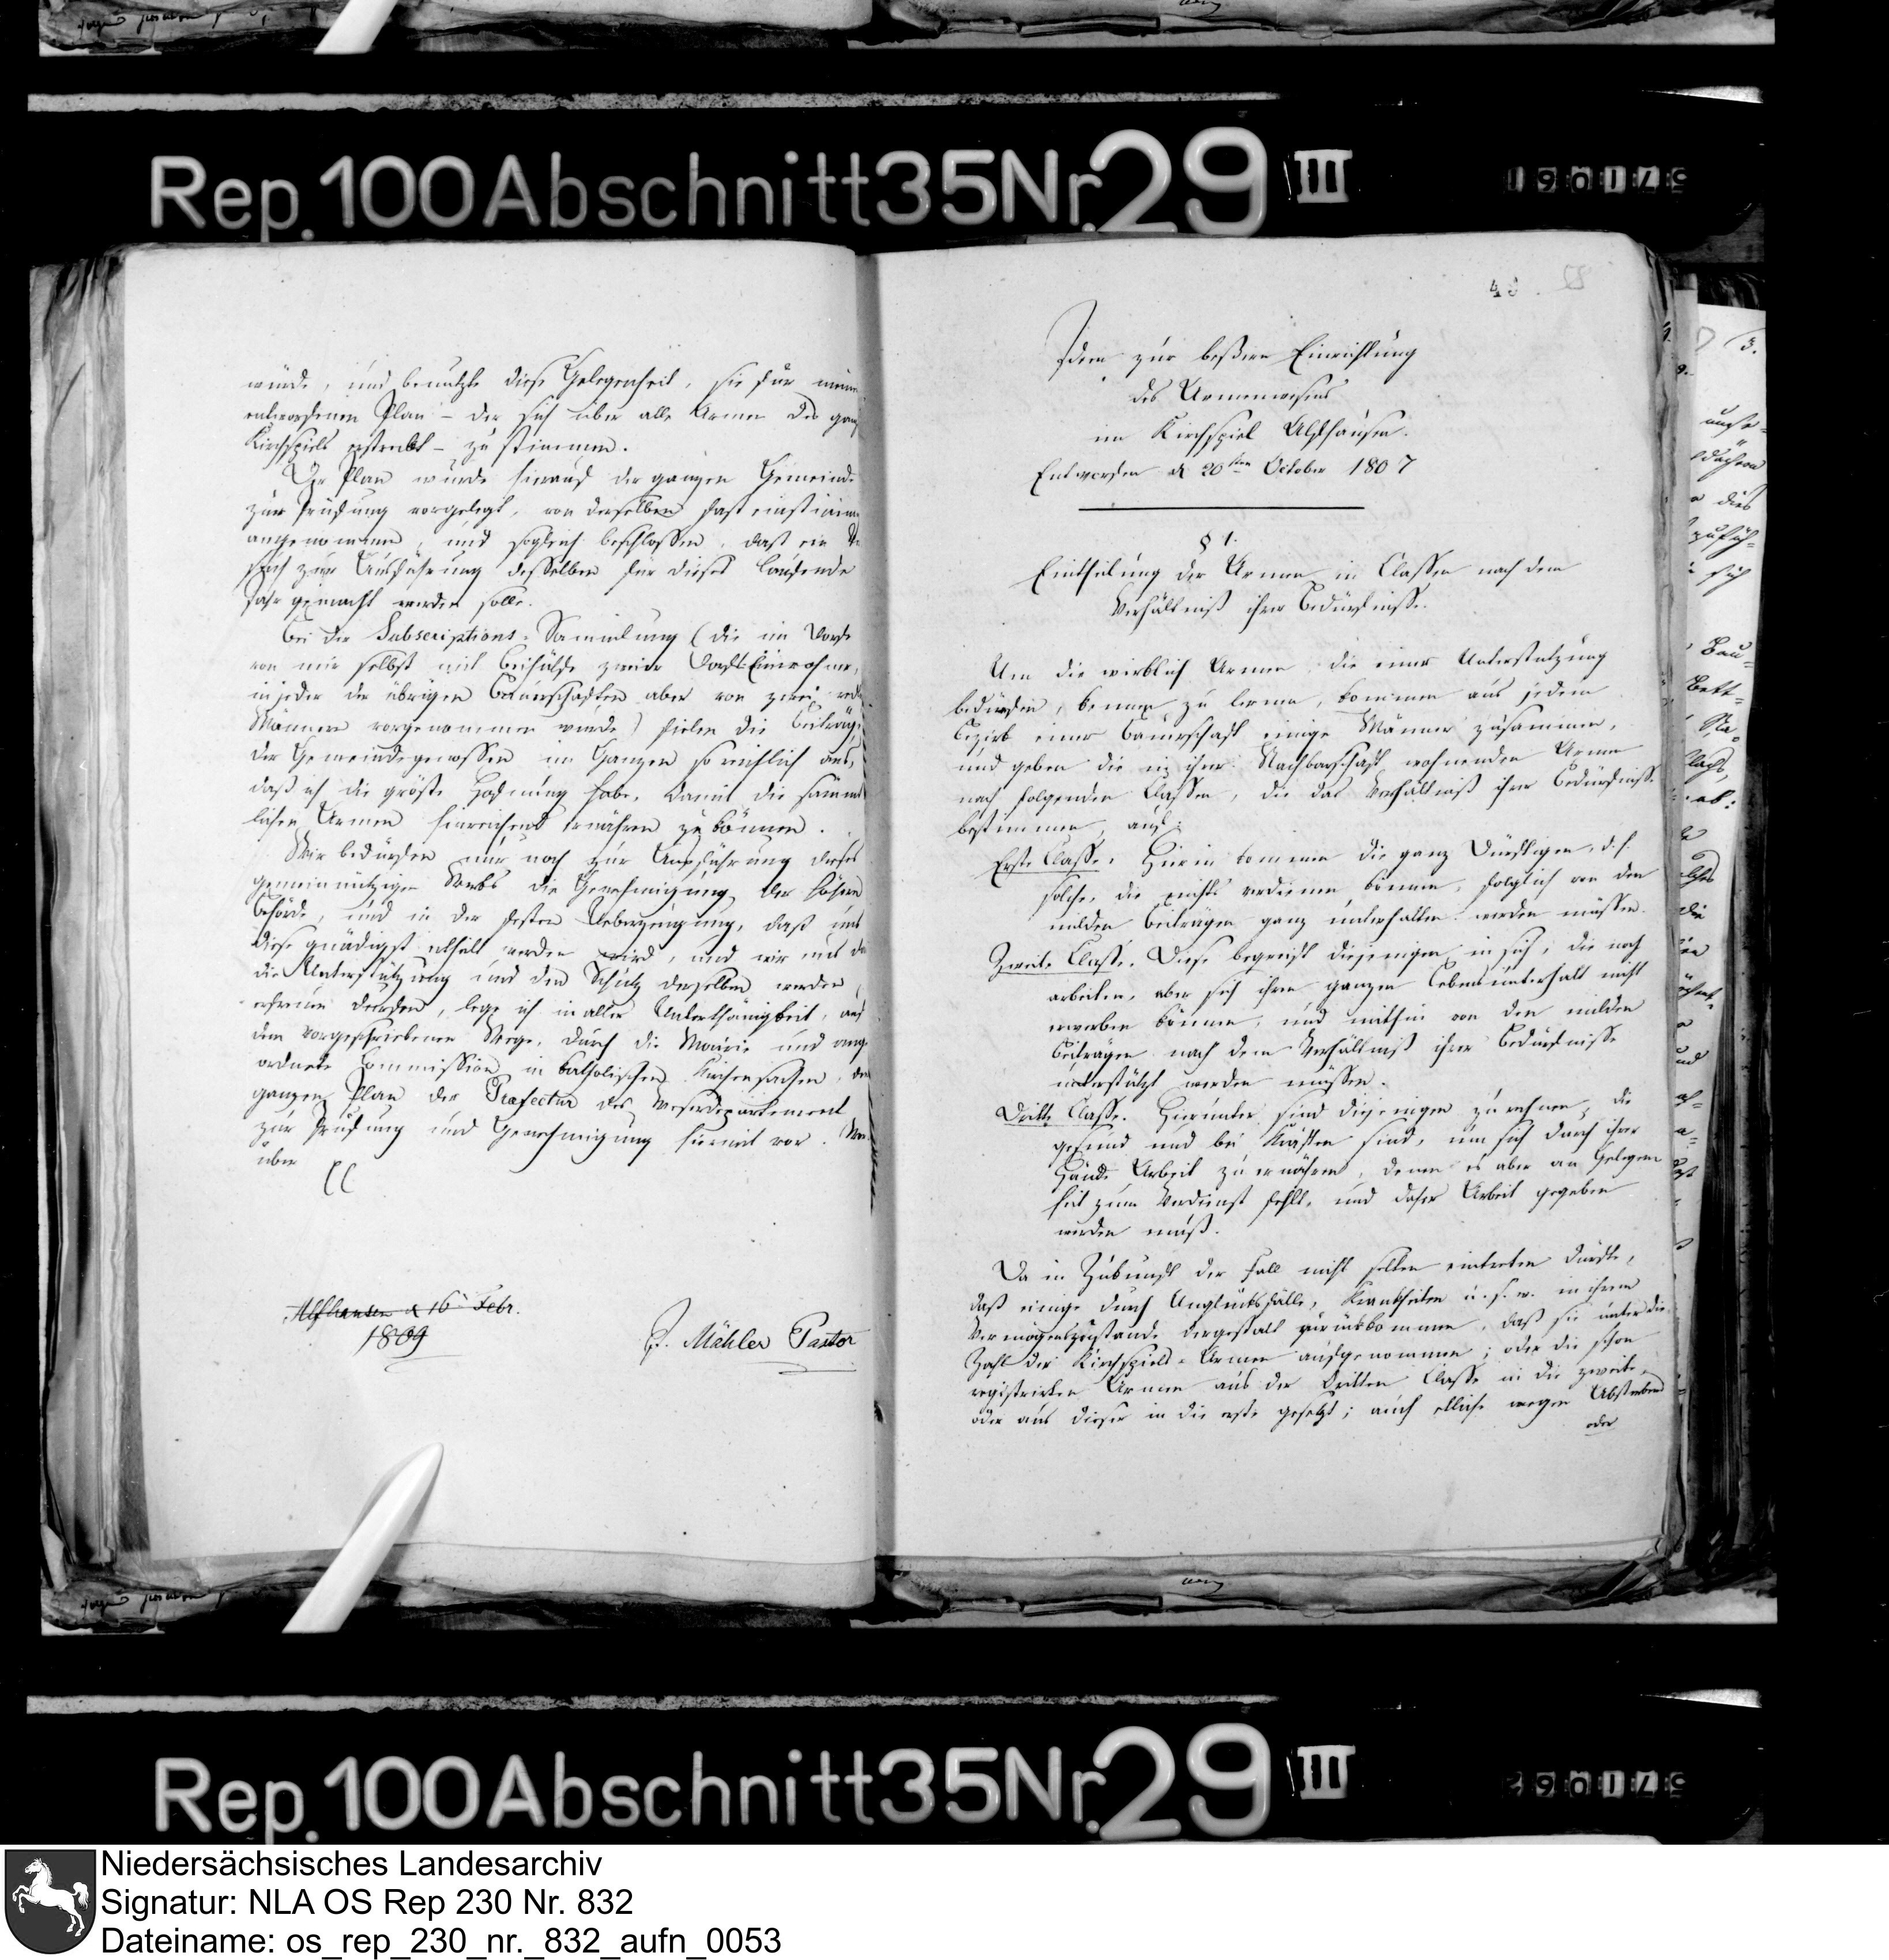 Rep. 100 Abschnitt 35 Nr. 29 III
würde, und benutzte diese Gelegenheit, sie für meinen
entworfenen Plan – der sich über alle Arme des ganzen
Kirchspiels erstreckt – zu stimmen.
Der Plan wurde hierauf der ganzen Gemeinde
zur Prüfung vorgelegt, von derselben fast einstimmig
angenommen, und sogleich beschlossen, daß ein
such zur Ausführung desselben für dieses laufende
Jahr gemacht werden solle.
Bei der Subscriptions-Sammlung (die im Dorfe
von mir selbst mit Beihülfe zweier Dorfs-Einwohner,
in jeder der übrigen Bauerschaften aber von zwei
Männern vorgenommen wurde) fielen die Beiträge
der Gemeindsgenossen im Ganzen so reichlich aus,
daß ich die größte Hofnung habe, damit die sämmt
lichen Armen hinreichend ernähren zu können.
Wir bedürfen nur noch zur Ausführung dieses
gemeinnützigen Werks die Genehmigung der höhern
Behörde, und in der festen Ueberzeugung, daß uns
diese gnädigst ertheilt werden wird, und wir uns
die Unterstützung und den Schutz derselben werden
erfreuen dürfen, lege ich in aller Unterthänigkeit, auf
dem vorgeschriebenen Wege, durch die Mairie und ange
ordnete Commission in katholischen Kirchensachen, den
ganzen Plan der Präfectur des Weserdepartement
zur Prüfung und Genehmigung hiermit vor.
über
Alfhausen d 16 Febr.
1809
Mähler Pastor
49.
58
Ideen zur beßeren Einrichtung
des Armenwesens
im Kirchspiel Alfhausen.
Entworfen d 20sten October 1807
§ 1.
Eintheilung der Armen in Classen nach dem
Verhältniß ihrer Bedürfnisse.
Um die wirklich Armen, die einer Unterstützung
bedürfen, kennen zu lernen, kommen aus jedem
Bezirk einer Bauerschaft einige Männer zusammen,
und geben die in ihrer Nachbarschaft wohnenden Arme
nach folgenden Classen, die das Verhältniß ihrer Bedürfnisse
bestimmen, auf:
Erste Classe. Hierin kommen die ganz Dürftigen, d. h.
solche, die nichts verdienen können, folglich von den
milden Beiträgen ganz unterhalten werden müssen.
Zweite Classe. Diese begreift diejenigen in sich, die noch
arbeiten, aber sich ihren ganzen Lebensunterhalt nicht
erwerben können, und mithin von den milden
Beiträgen nach dem Verhältniß ihrer Bedürfnisse
unterstützt werden müssen.
Dritte Classe. Hierunter sind diejenigen zu rechnen, die
gesund und bei Kräften sind, um sich durch ihrer
Hände Arbeit zu ernähren, denen es aber an Gelegen
heit zum Verdienst fehlt, und daher Arbeit gegeben
werden muß.
Da in Zukunft der Fall nicht selten eintreten dürfte,
daß einige durch Unglücksfälle, Krankheiten u. s. w. in ihrem
Vermögenszustande dergestalt zurückkommen, daß sie unter die
Zahl der Kirchspiels-Armen aufgenommen; oder die schon
registrirten Armen aus der dritten Classe in die zweite,
oder aus dieser in die erste gesetzt; auch etliche wegen Absterbens
oder
Rep. 100 Abschnitt 35 Nr. 29 III
Niedersächsisches Landesarchiv
Signatur: NLA OS Rep 230 Nr. 832
Dateiname: os_rep_230_nr._832_aufn_0053